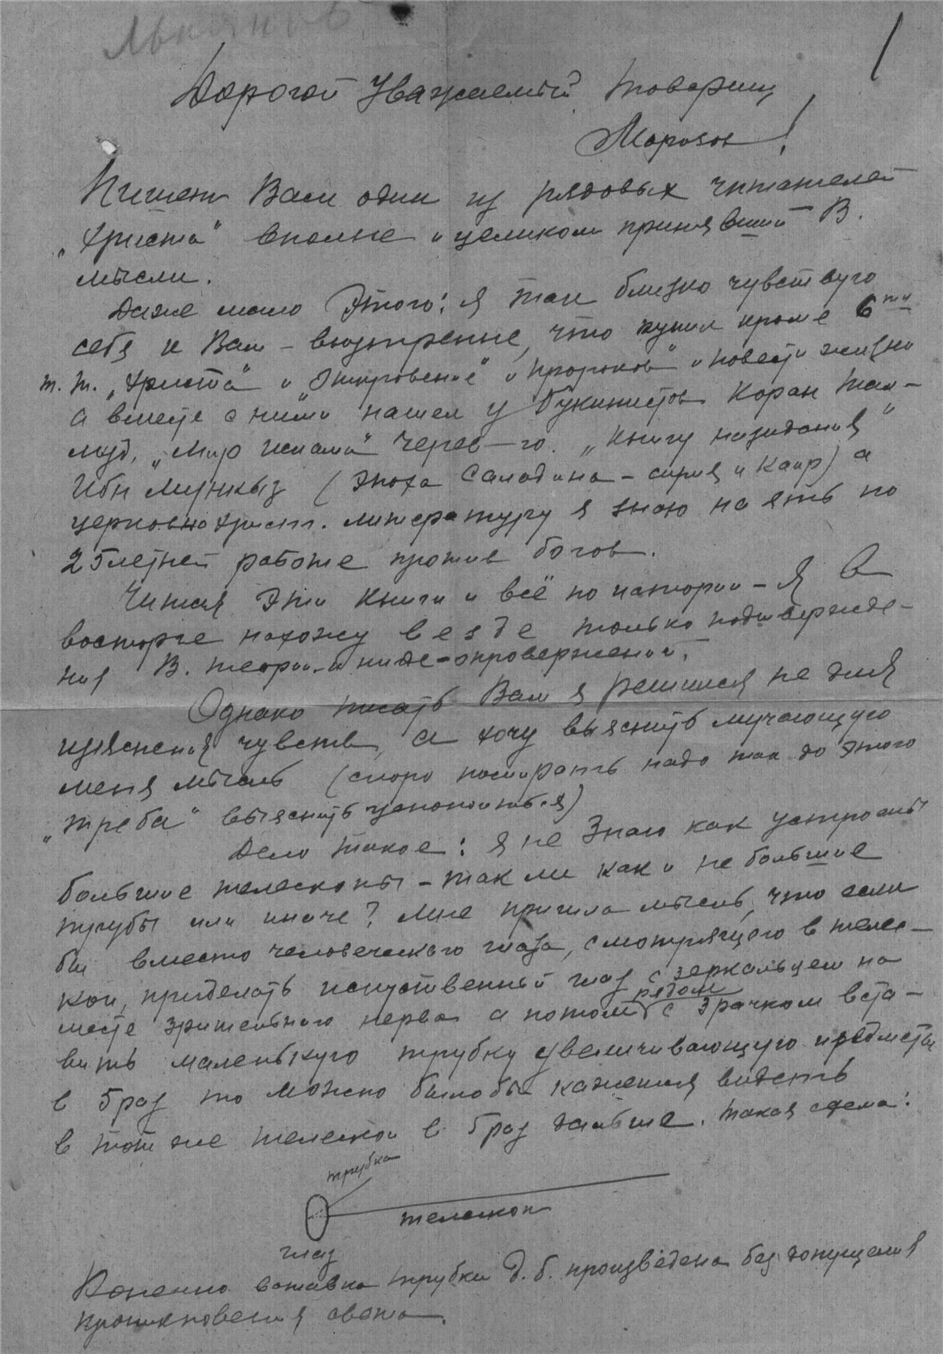 1
Дорогой Уважаемый товарищ
Морозов!
Пишет Вам один из рядовых читателей
„Христа“ вполне и целиком принявший В.
мысли.
Даже мало этого: я так близко чувствую
себя к Вам – внутренне, что купил кроме 6ти
т.т. „Христа“ и „Откровение“ и „Пророков“ и повести жизни
а вместе с ними нашел у букинистов Коран Тал-
муд, „Мир ислама“ „Книгу назидания“
Ибн Мункыз (эпоха Саладина – сирия и Каир) а
церковнохрист. литературу я знаю на ять по
25летней работе против богов.
Читая эти книги и всё по истории – я в
восторге нахожу везде только подтвержде-
ния В. теории и нигде – опровержений.
Однако писать Вам я решился не для
изяснения чувств, а хочу выяснить мучающую
меня мысль (скоро помирать надо так до этого
„треба“ выяснить успокоиться)
Дело такое: я не знаю как устроены
большие телескопы – так ли как и не большие
трубы или иначе? Мне пришла мысль, что если
бы вместо человеческого глаза, смотрящего в телес-
коп, приделать искуственный глаз с зеркальцем на
месте зрительного нерва а потом рядом с зрачком вста-
вить маленькую трубку увеличивающую предметы
в 5 раз то можно былобы кажется видеть
в тот же телескоп в 5 раз дальше. Такая схема:
трубка
телескоп
глаз
Конечно вставка трубки д.б. произведена без допущения
проникновения света.